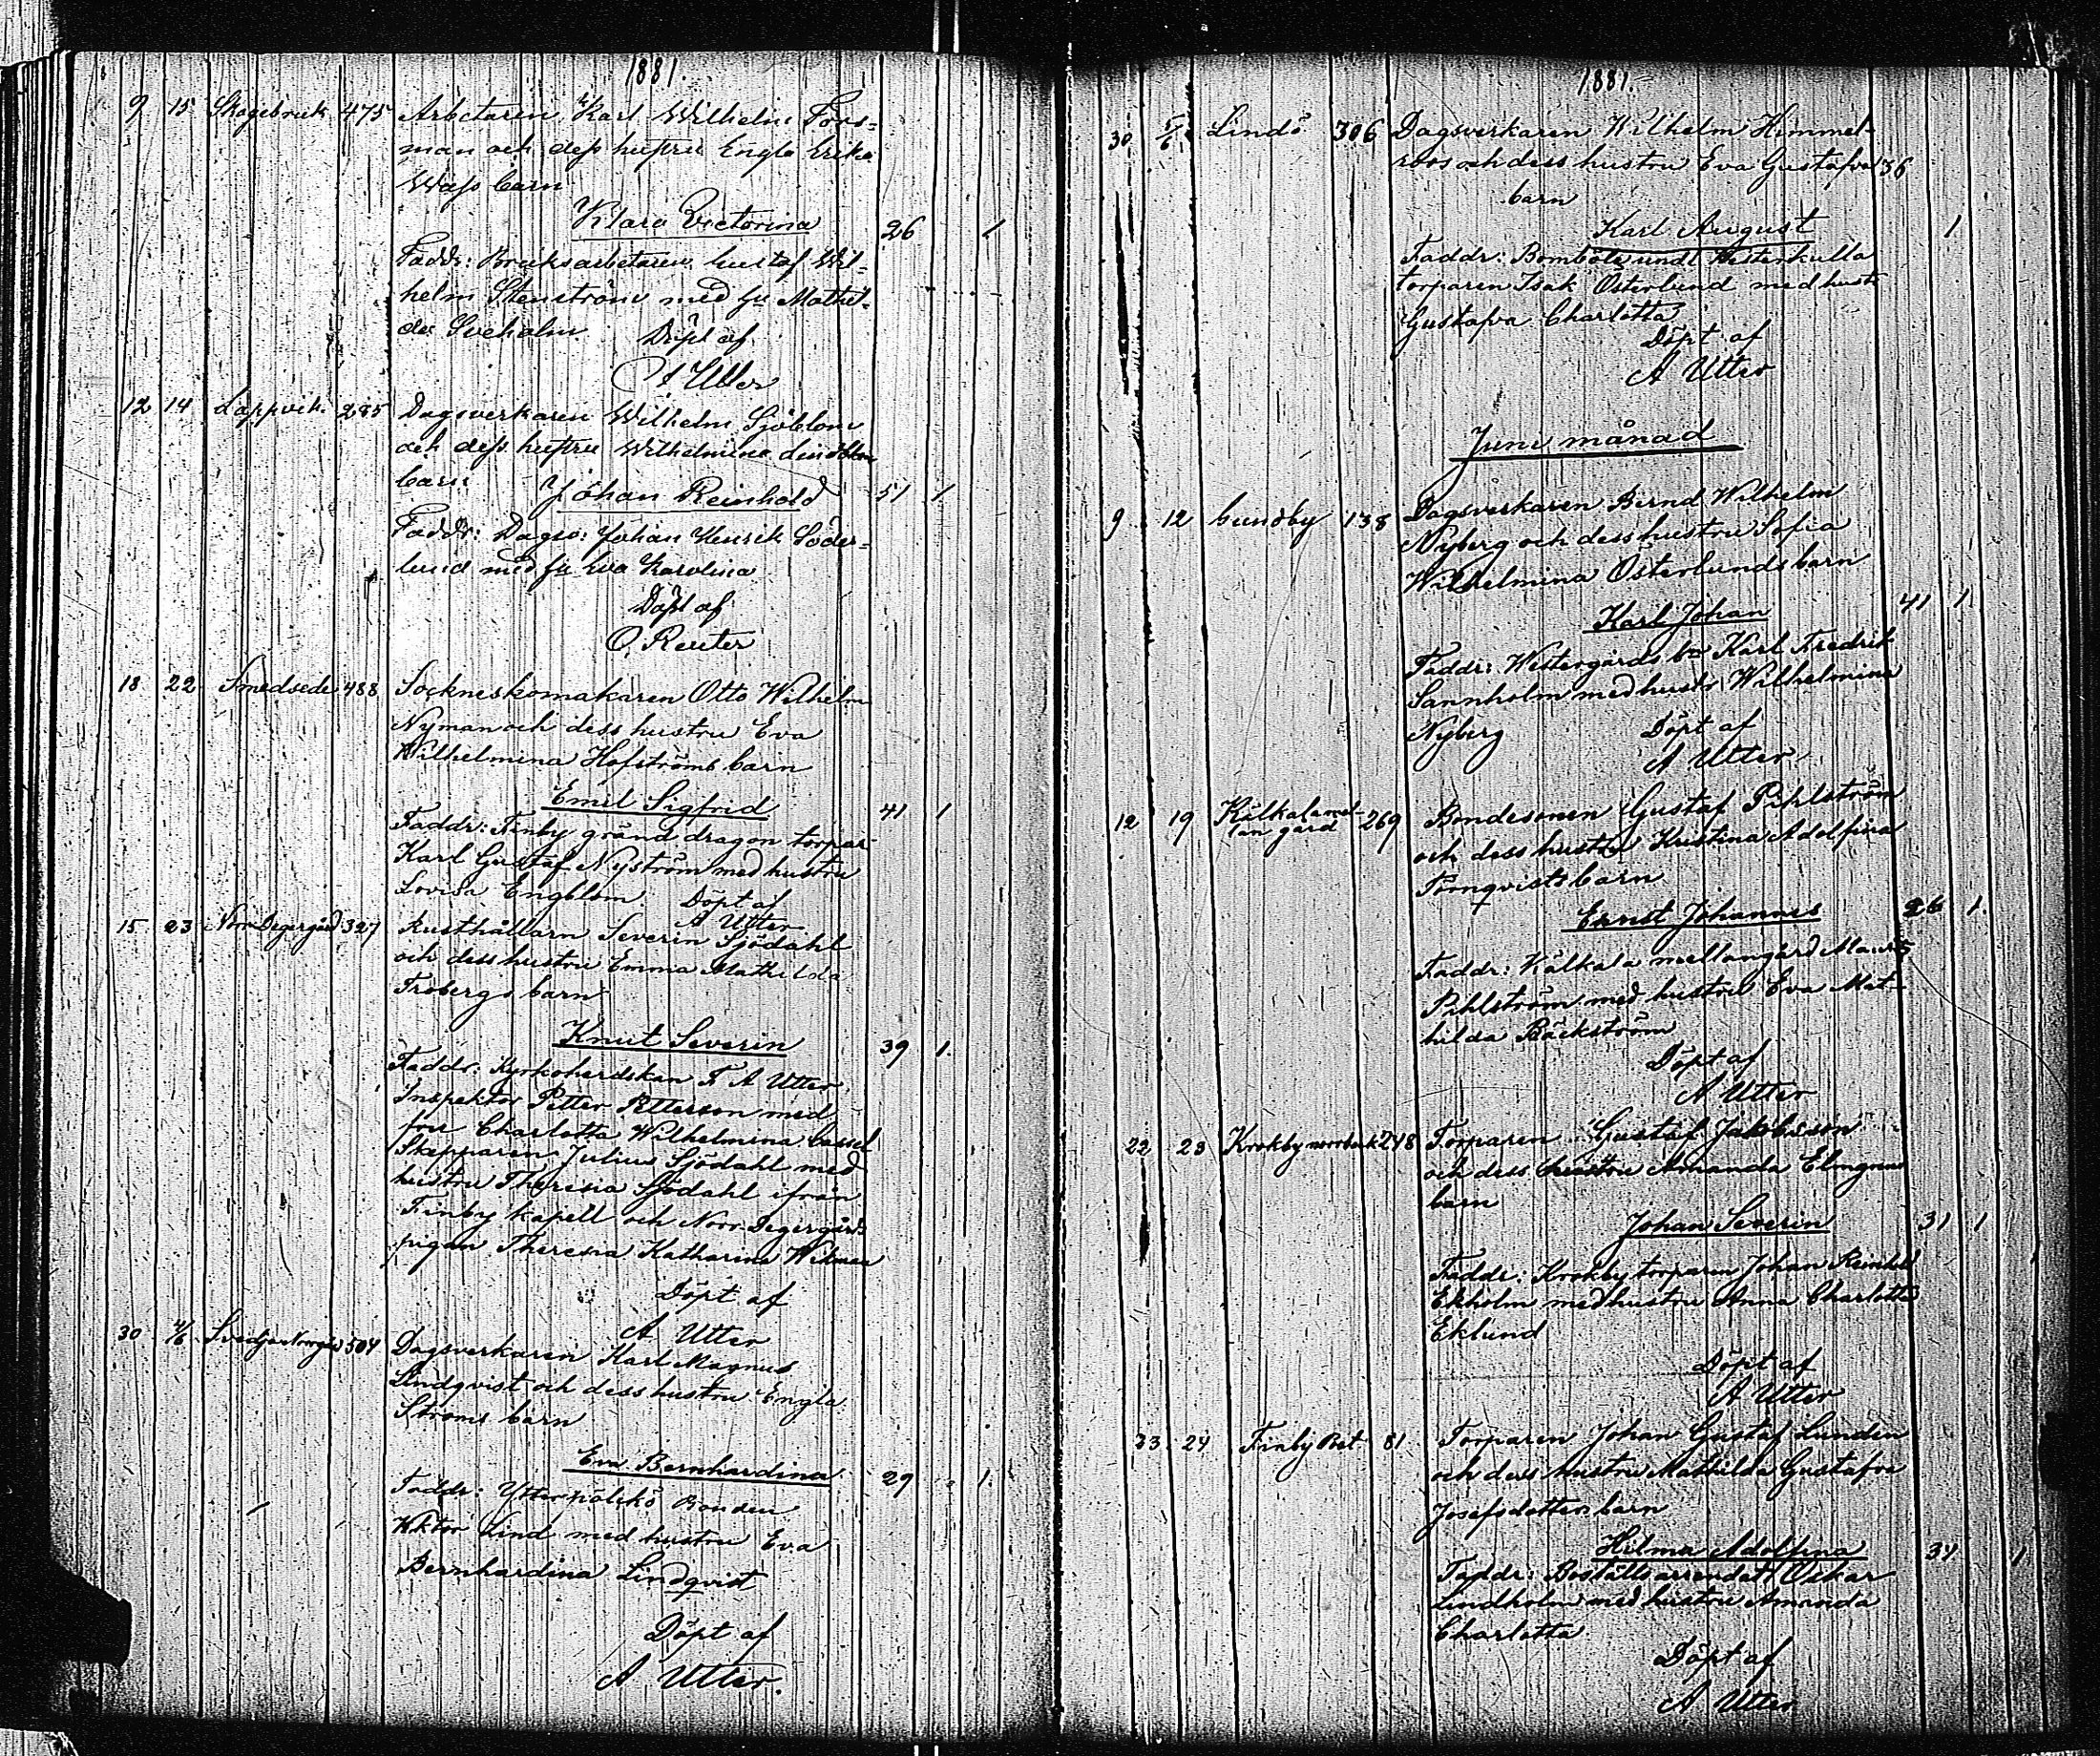 1881.
9 15 Skogsbruk 475 Arbetaren Karl Wilhelm Fors=
man och dess hustru Engla Erika
Wass barn
Klara Victorina 26 1
Faddr: Bruksarbetaren Gustaf Wil=
helm Stenström med hu Mathil=
da Sveholm Döpt af
A Utter
12 14 Lappvik 285 Dagsverkaren Wilhelm Sjöblom
och dess hustru Wilhelmina Lindblom
barn Johan Reinhold 51 1
Faddr: Dagsv: Johan Henrik Söder=
lund med hu Eva Karolina
Döpt af
O. Reuter
18 22 Smedsede 488 Sockneskomakaren Otto Wilhelm
Nyman och dess hustru Eva
Wilhelmina Hofströms barn
Emil Sigfrid 41 1
Faddr: Finby gränd dragon torpar
Karl Gustaf Nyström med hustru
Lovisa Engblom Döpt af
A Utter
15 23 Norr Degergård 327 Rusthållarn Severin Sjödahl
och dess hustru Emma Mathilda
Frobergs barn
Knut Severin 39 1.
Faddr: Kyrkoherdskan F A Utter
Inspektor Petter Petterson med
fru Charlotta Wilhelmina Cassel
Skepparen Julius Sjödahl med
hustru Theresia Sjödahl ifrån
Finby kapell och Norr Degergårds
pigan Theresia Katharina Wikman
Döpt af
A Utter
30 4/6 Svedja Norrgård 504 Dagsverkaren Karl Magnus
Lindqvist och dess hustru Engla
Ströms barn
Eva Bernhardina 29 1.
Faddr: Ytterkölskö Bonden
Viktor Lind med hustru Eva
Bernhardina Lindqvist
Döpt af
A Utter.
1881.
30 5/6 Lindö 306 Dagsverkaren Wilhelm Himmel-
roos och dess hustru Eva Gustafva 36
barn
Karl August 1
Faddr: Bomböle undl Westerkulla
torparen Isak Österlund med hustr
Gustafva Charlotta
Döpt af
A Utter
Juni månad
9 12 Gundby 138 Dagsverkaren Bernd Wilhelm
Nyberg och dess hustru Sofia
Wilhelmina Österlunds barn
Karl Johan 41 1
Faddr: Westergårds bo Karl Fredrik
Sannholm med hustr Wilhelmina
Nyberg Döpt af
A Utter
12 19 Kälkala mel-
lan gård 269 Bondesonen Gustaf Pihlström
och dess hustru Kristina Adolfina
Törnqvists barn
Ernst Johannes 26 1.
Faddr: Kälkala mellangård Mauritz
Pihlström med hustru Eva Mat-
hilda Bäckström
Döpt af
A Utter
22 23 Krokby norrback 248 Torparen Gustaf Jakobsson
och dess hustru Amanda Elmgrens
barn
Johan Severin 31 1
Faddr: Krokby torparen Johan Reinhold
Ekholm med hustru Anna Charlotta
Eklund
Döpt af
A Utter
23 24 Finby Bost 81 Torparen Johan Gustaf Lunden
och dess hustru Mathilda Gustafva
Josefsdotters barn
Hilma Adolfina 34 1
Faddr: Boställsarrendat Oskar
Lindholm med hustru Amanda
Charlotta
Döpt af
A Utter